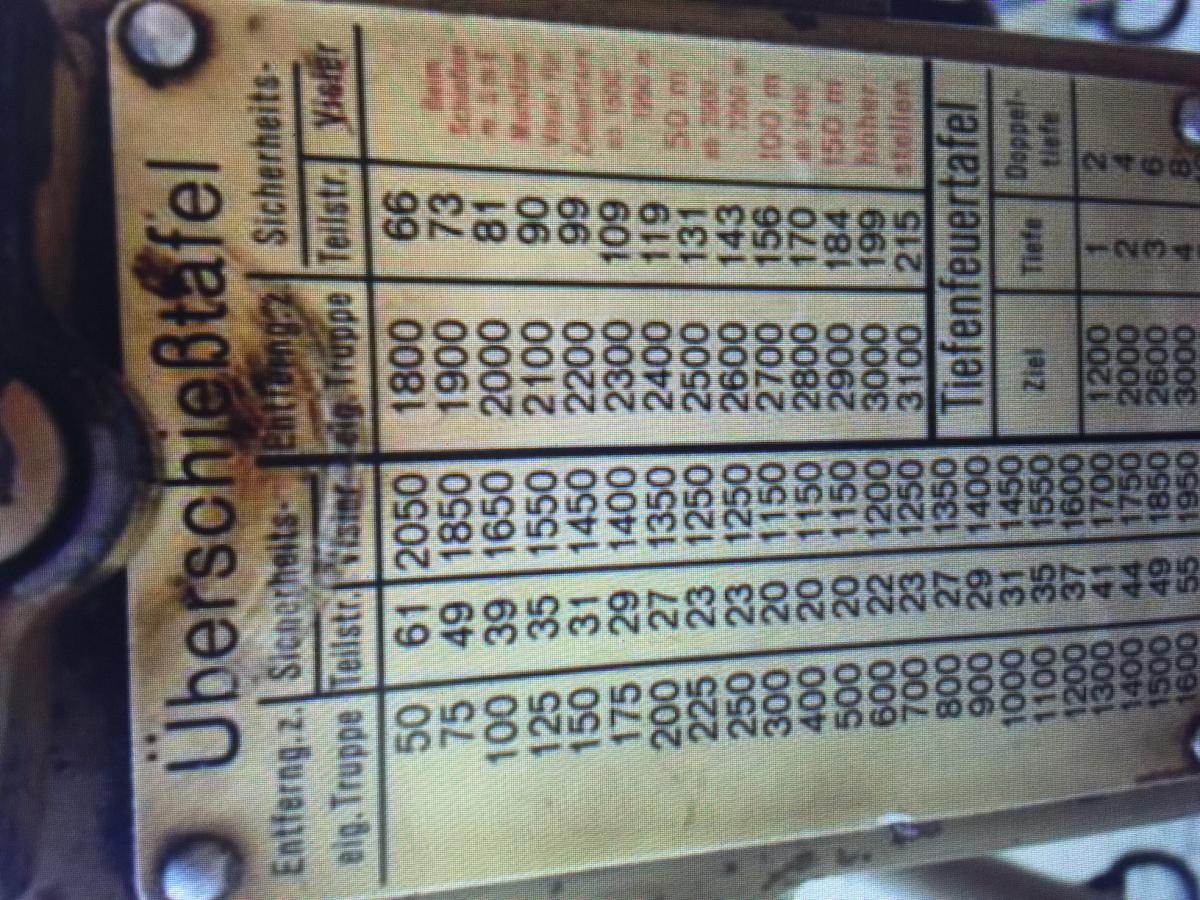 Überschießtafel
Entferng. z. Sicherheits- Entferng. z. Sicherheits-
eig. Truppe Teilstr. Visier eig. Truppe Teilstr. Visier
50 61 2050 1800 66
75 49 1850 1900 73 Schießen
100 39 1650 2000 81
125 35 1550 2100 90
150 31 1450 2200 99
175 29 1400 2300 109
200 27 1350 2400 119
225 23 1250 2500 131 50 m
250 23 1250 2600 143
300 20 1150 2700 156 100 m
400 20 1150 2800 170
500 20 1150 2900 184 150 m
600 22 1200 3000 199 höher
700 23 1250 3100 215 stellen
800 27 1350 Tiefenfeuertafel
900 29 1400
1000 31 1450 Ziel Tiefe Doppel-
1100 35 1550 tiefe
1200 37 1600
1300 41 1700 1200 1 2
1400 44 1750 2000 2 4
1500 49 1850 2600 3 6
1600 55 1950 3000 4 8